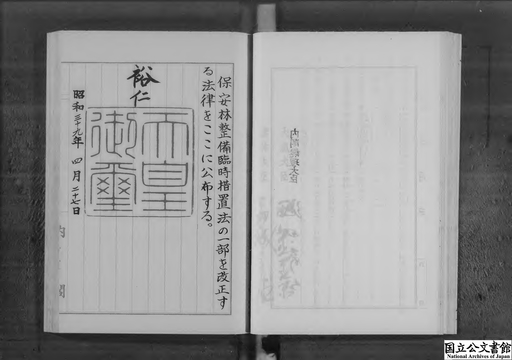 保安林整備臨時措置法の一部を改正す
る法律をここに公布する。
裕仁
天皇
御璽
昭和三十九年四月二十七日
内閣
内閣総理大臣
国立公文書館
National Archives of Japan